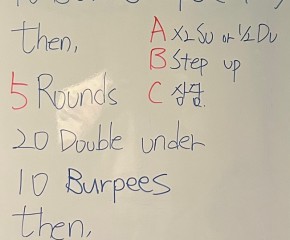 then,
A X2 SU or 1/2 DU
B Step up
5 Rounds
C 점프
20 Double under
10 Burpees
then,